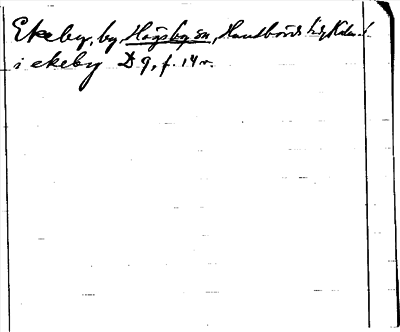 Ekeby, by, Högsby sn, Handbörds hd, Kalm. l.
i ekeby D 9, f. 14 r.